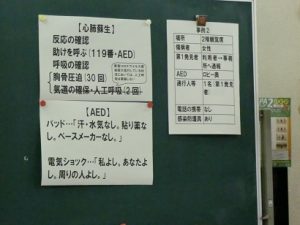 【心肺蘇生】
反応の確認
助けを呼ぶ(119番・AED)
呼吸の確認
胸骨圧迫(30回)
気道の確保・人工呼吸(2回)
【AED】
パッド…「汗・水気なし。貼り薬な
し。ペースメーカーなし。」
電気ショック…「私よし。あなたよ
し。周りの人よし。」
事例2
場所 2階観覧席
傷病者 女性
第1発見者 利用者→事務
所へ通報
AED ロビー奥
通行人等 1名:第1発見
者
電話の携帯 なし
感染防護具 あり